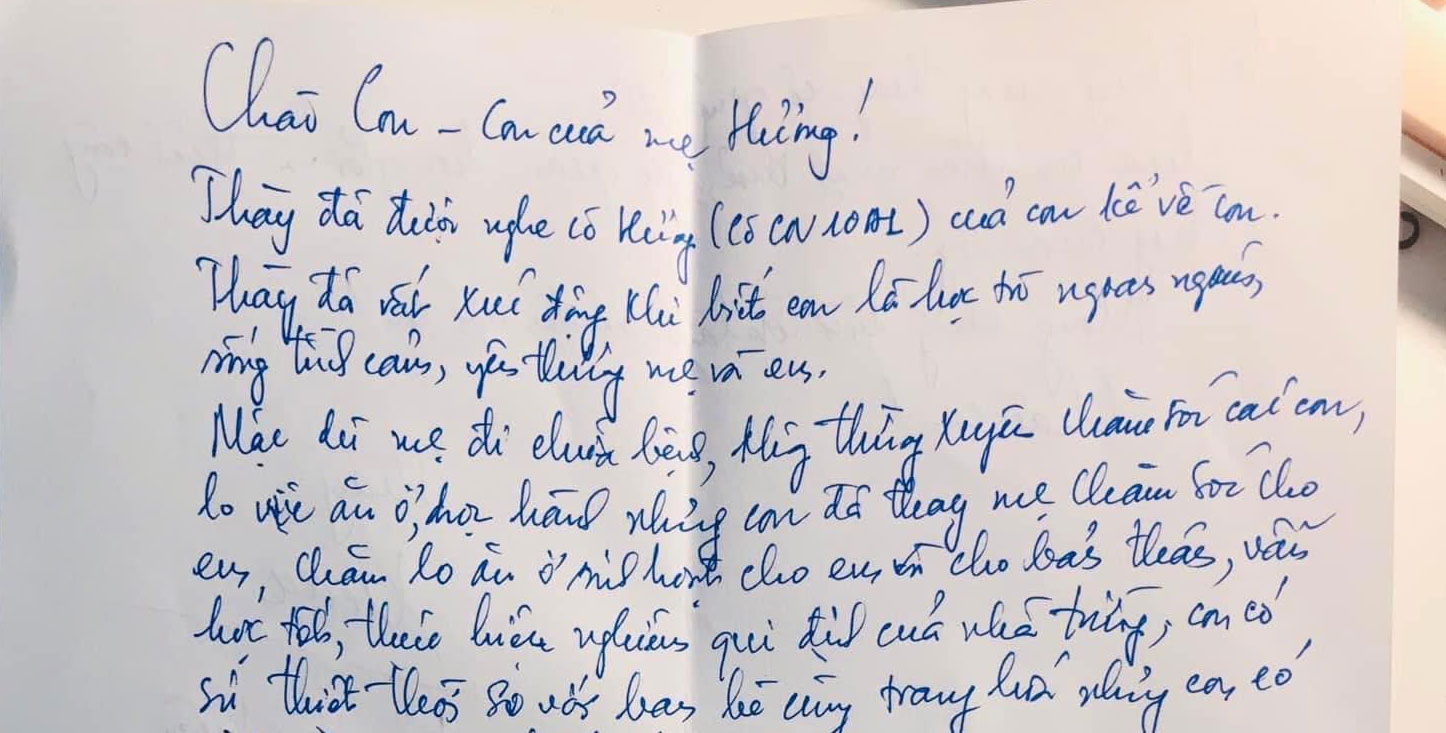 Chào Con - Con của mẹ Hường!
Thầy đã được nghe cô Hường (Cô CN 10A1) của con kể về con.
Thầy đã rất xúc động khi biết con là học trò ngoan ngoãn,
sống tình cảm, yêu thương mẹ và em.
Mặc dù mẹ đi chữa bệnh, không thường xuyên chăm sóc các con,
lo việc ăn ở, học hành nhưng con đã thay mẹ chăm sóc cho
em, chăm lo ăn ở sinh hoạt cho em và cho bản thân, vẫn
học tốt, thực hiện nghiêm qui định của nhà trường, con có
sự thiệt thòi so với bạn bè cùng trang lứa nhưng con có